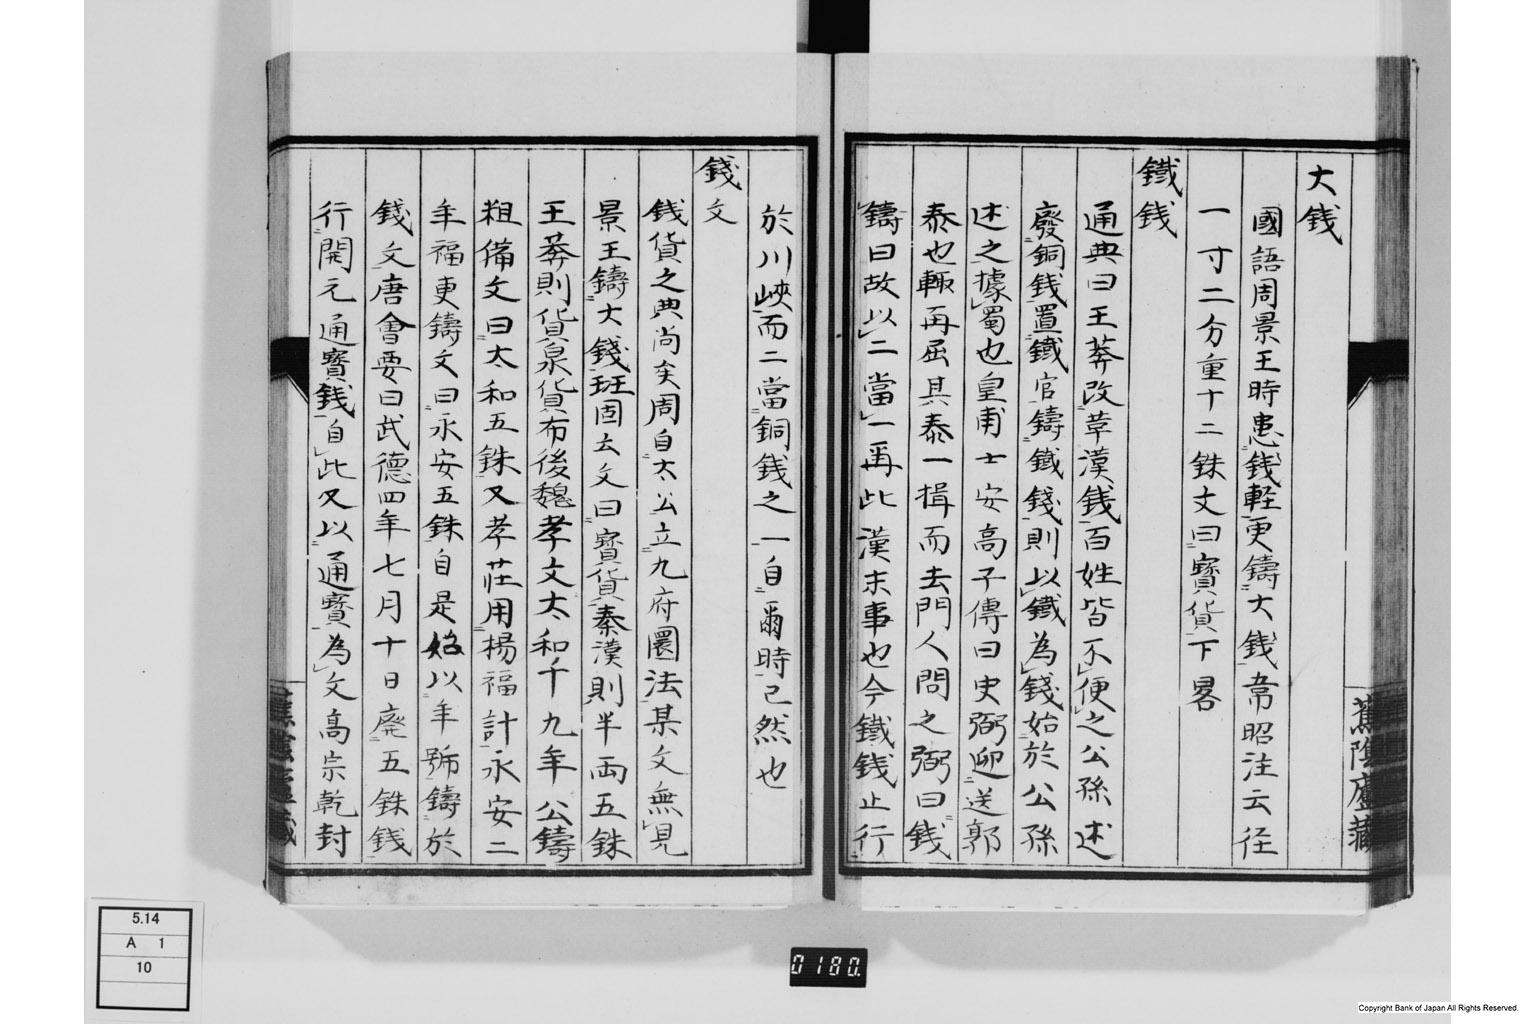 大錢
國語周景王時患錢軽更鑄大錢韋昭注云径
一寸二分重十二銖文曰寶貨下畧
鐵錢
通典曰王莽改革漢錢百姓皆不便之公孫述
廢銅錢置鐵官鑄鐵錢則以鐵為錢始於公孫
述之據蜀也皇甫士安高子傳曰史弼迎送郭
泰也輙再屈其泰一揖而去門人問之弼曰錢
鑄曰故以二當一再此漢末事也今鐵錢止行
於川峽而二當銅錢之一自爾時已然也
錢文
錢貨之典尚矣周自太公立九府圜法某文無見
景王鑄大錢班固云文曰寶貨秦漢則半両五銖
王莽則貨泉貨布後魏孝文太和千九年公鑄
粗備文曰太和五銖又孝荘用楊福計永安二
年福更鑄文曰永安五銖自是始以年號鑄於
錢文唐會要曰武德四年七月十日廃五銖錢
行開元通寶錢自此又以通寶為文高宗乾封
蕉陰廬藏
5.14
A 1
10
0180.
Copyright Bank of Japan All Rights Reserved.